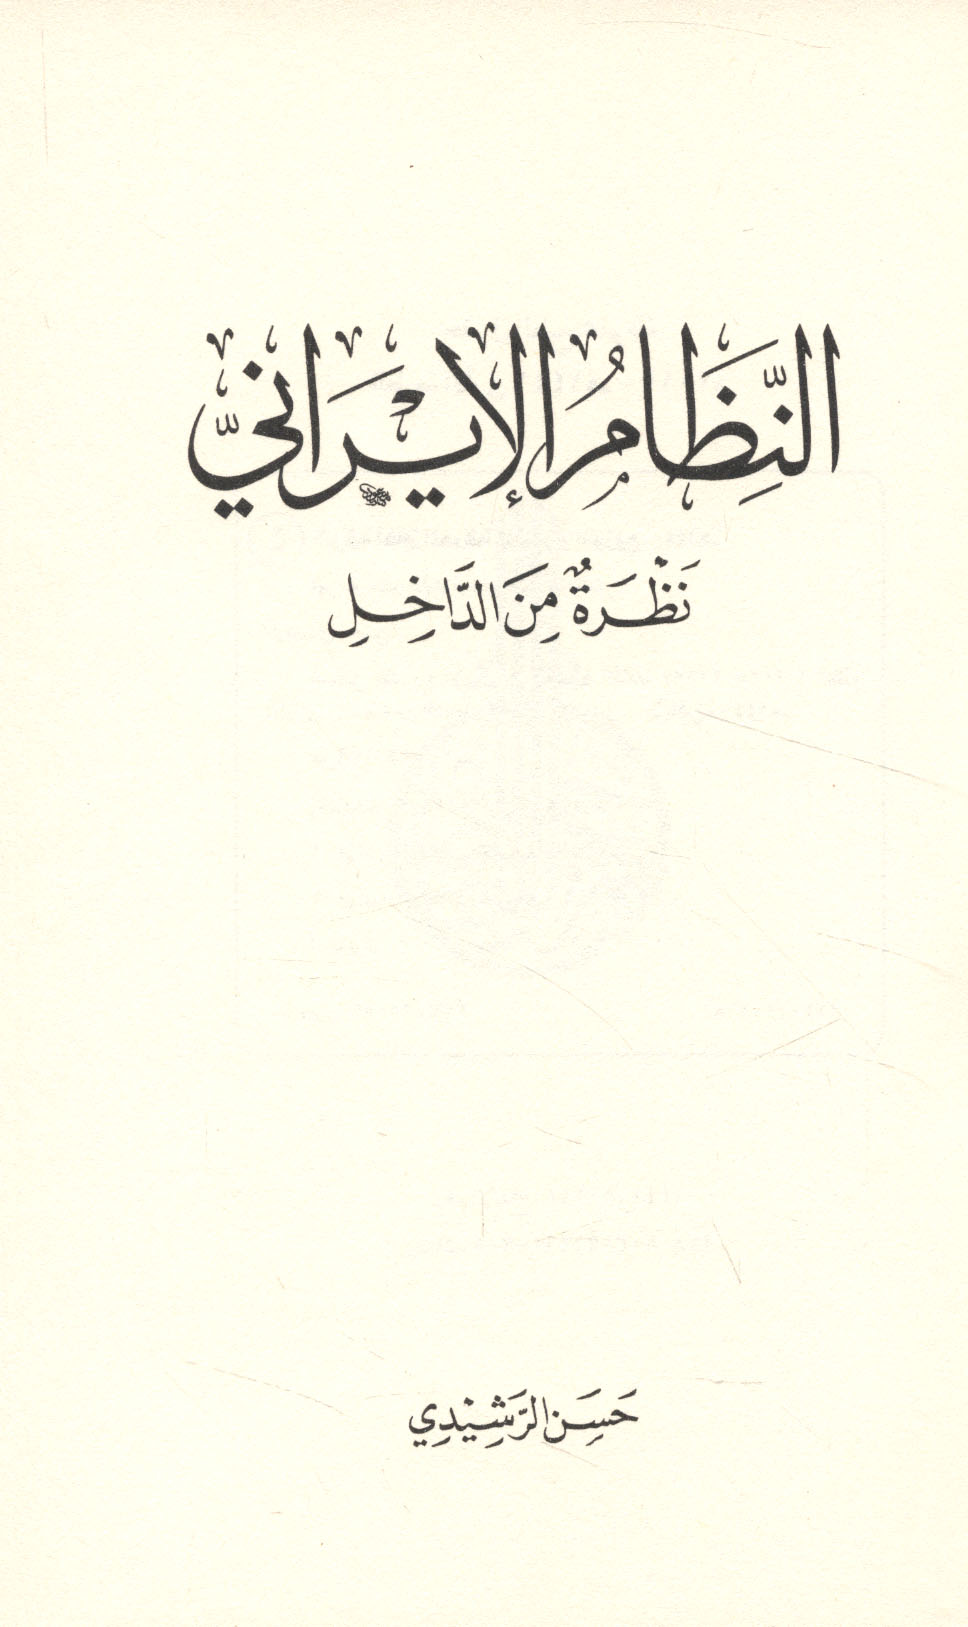 النِّظَامُ الإيْرَانيّ
نَظْرَةٌ مِنَ الدَّاخِلِ
حَسَن الرَّشِيْدِي